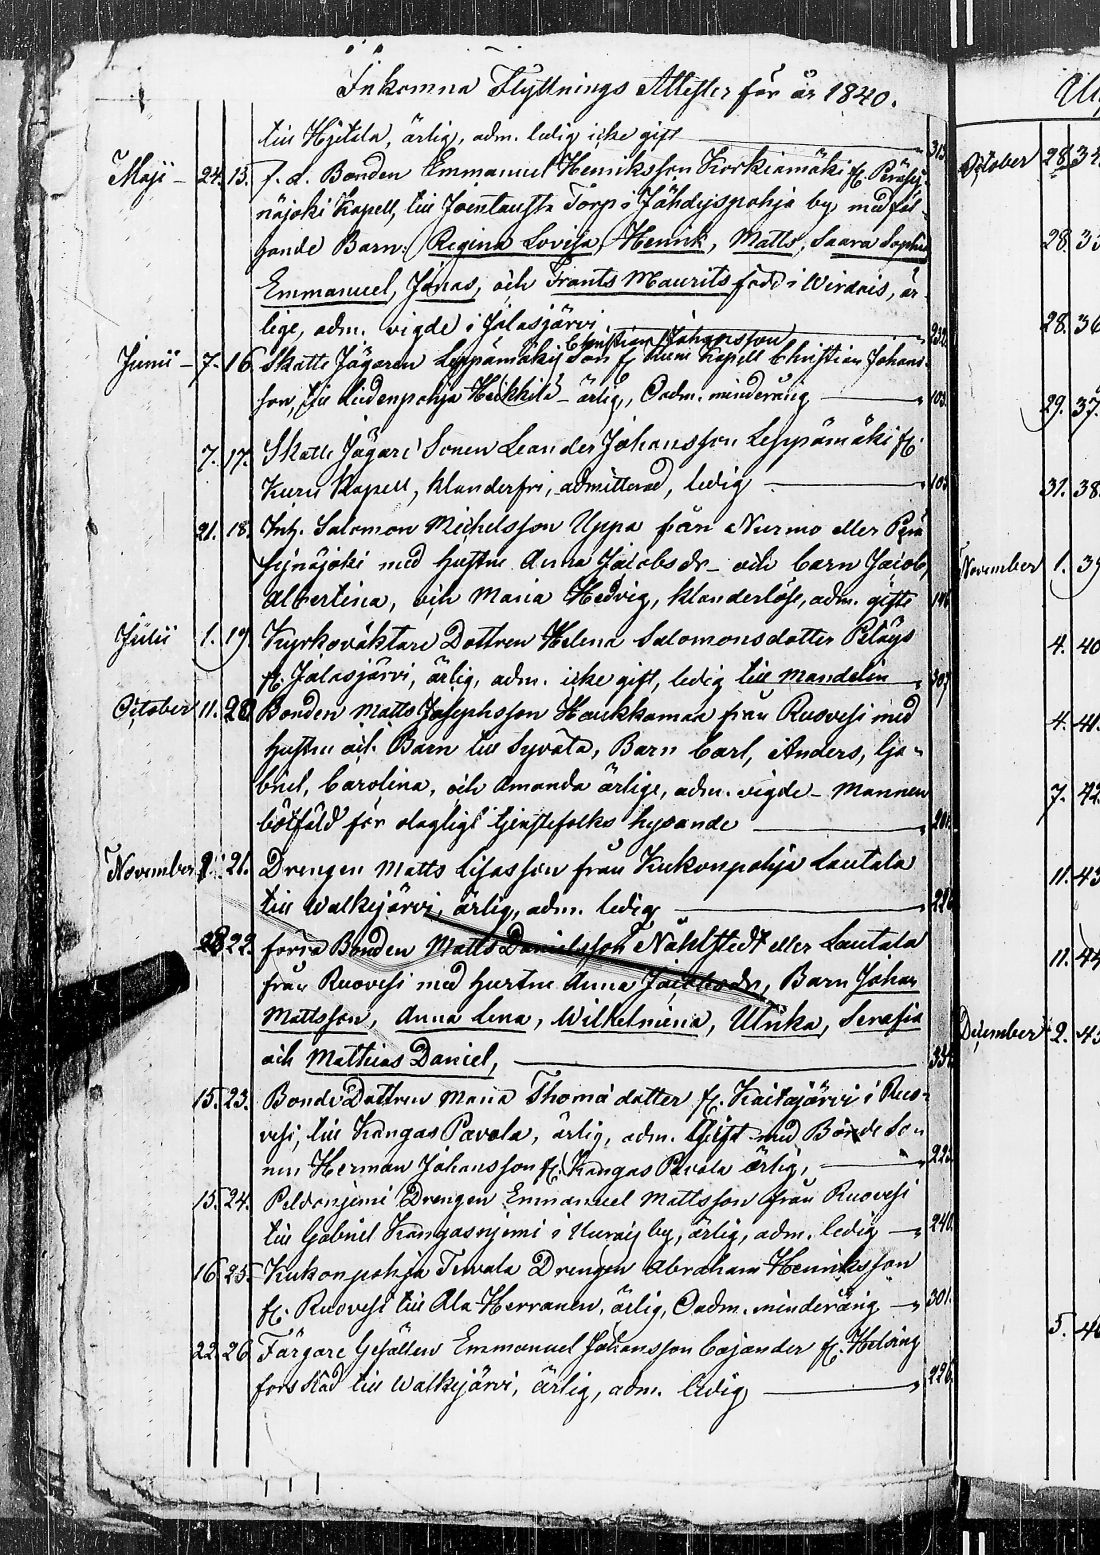 Inkomna Flyttnings Attester för år 1840.
till Hjttila, ärlig, adm. ledig icke gift 313.
Maji 24. 15. f. d. Bonden Emmanuel Henriksson Korkiamäki fr. Peräsey-
näjoki Kapell, till Torp i Jähdyspohja by med föl-
jande Barn: Regina Lovisa, Henrik, Matts, Saara Sophia
Emmanuel, Jonas, och Frants Maurits född i Wirdois, är-
lige, adm. vigde i Jalasjärvi. 232.
Christian Johansson
Junii 7. 16. Skatte Jägaren Leppämäki Son fr. Kuru Kapell Christian Johans-
son, till Liedenpohja Heikkilä ärlig, Oadm. minderårig 103.
7. 17. Skatte Jägare Sonen Leander Johansson Leppämäki fr.
Kuru Kapell, klanderfri, admitterad, ledig 103.
21. 18. Inh. Salomon Michelsson Uppa från Nurmo eller Perä
seynäjoki med hustru Anna Jacobsdr och barn Jacob,
Albertina, och Maria Hedvig, klanderlöse, adm. gifte
Julii 1. 19. Kyrkoväktare Dottren Helena Salomonsdotter Peltäys
fr. Jalasjärvi, ärlig, adm. icke gift, ledig till Mandelin 307
October 11. 20. Bonden Matts Josephsson Haukkamaa från Ruovesi med
hustru och Barn till Syväta, Barn Carl, Anders, Ga-
briel, Carolina, och Amanda ärlige, adm. vigde Mannen
bötfäld för olagligt tjenstefolks hysande
November 21. Drengen Matts Lisasson från Kukonpohja Lautala
till Walkejärvi, ärlig, adm. ledig 226
28 22. förra Bonden Matts Danielsson Nåhlstedt eller Lautala
från Ruovesi med hustru Anna Jacobsdr, Barn Johan
Mattsson, Anna Lena, Wilhelmina, Ulrika, Serafia
och Mathias Daniel, 334
15. 23. Bonde Dottren Maria Thomädotter fr. Kaitajärvi i Ruo-
vesi, till Kangas Pavola, ärlig, adm. Gift med Bonde So-
nen Herman Johansson fr. Kangas Pavola ärlig,
15. 24. Peldoniemi Drengen Emmanuel Mattsson från Ruovesi
till Gabriel Kangasniemi i by, ärlig, adm. ledig 240.
16. 25. Kukonpohja Tervala Drengen Abraham Henriksson
fr. Ruovesi till Ala Herranen, ärlig, Oadm. minderårig 301.
22. 26. Färgare Gesällen Emmanuel Johansson Cajander fr. Helsing
fors Stad till Walkejärvi, ärlig, adm. ledig 226.
October 28.
28.
28. 36
29. 37.
31. 38.
November 1. 39
4. 40
4. 41.
7. 42
11. 43
11. 44
December 2. 45
5. 46